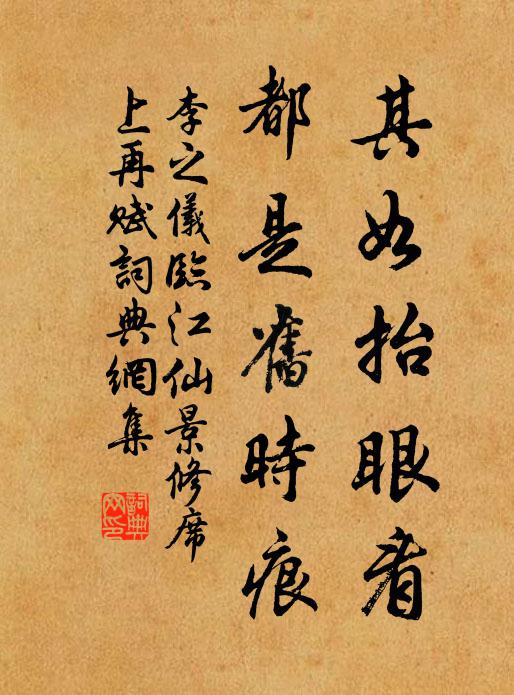 其如抬眼看
都是舊時痕
李之儀臨江仙景修席
上再賦詞典網集
詞典
网印